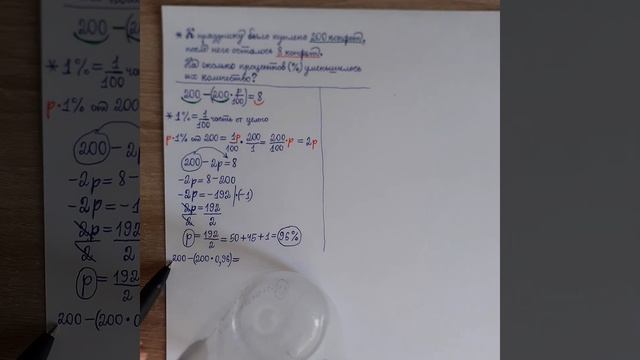 * К празднику было куплено 200 конфет,
после него осталось 8 конфет.
На сколько процентов (%) уменьшилось
их количество?
200-(200·p/100)=8
* 1%=1/100 часть от целого
p·1% от 200 = 1p/100 · 200/1 = 200/100 · p = 2p
200-2p=8
-2p=8-200
-2p=-192 |·(-1)
2p/2=192/2
p=192/2=50+45+1=96%
200-(200·0,96)=